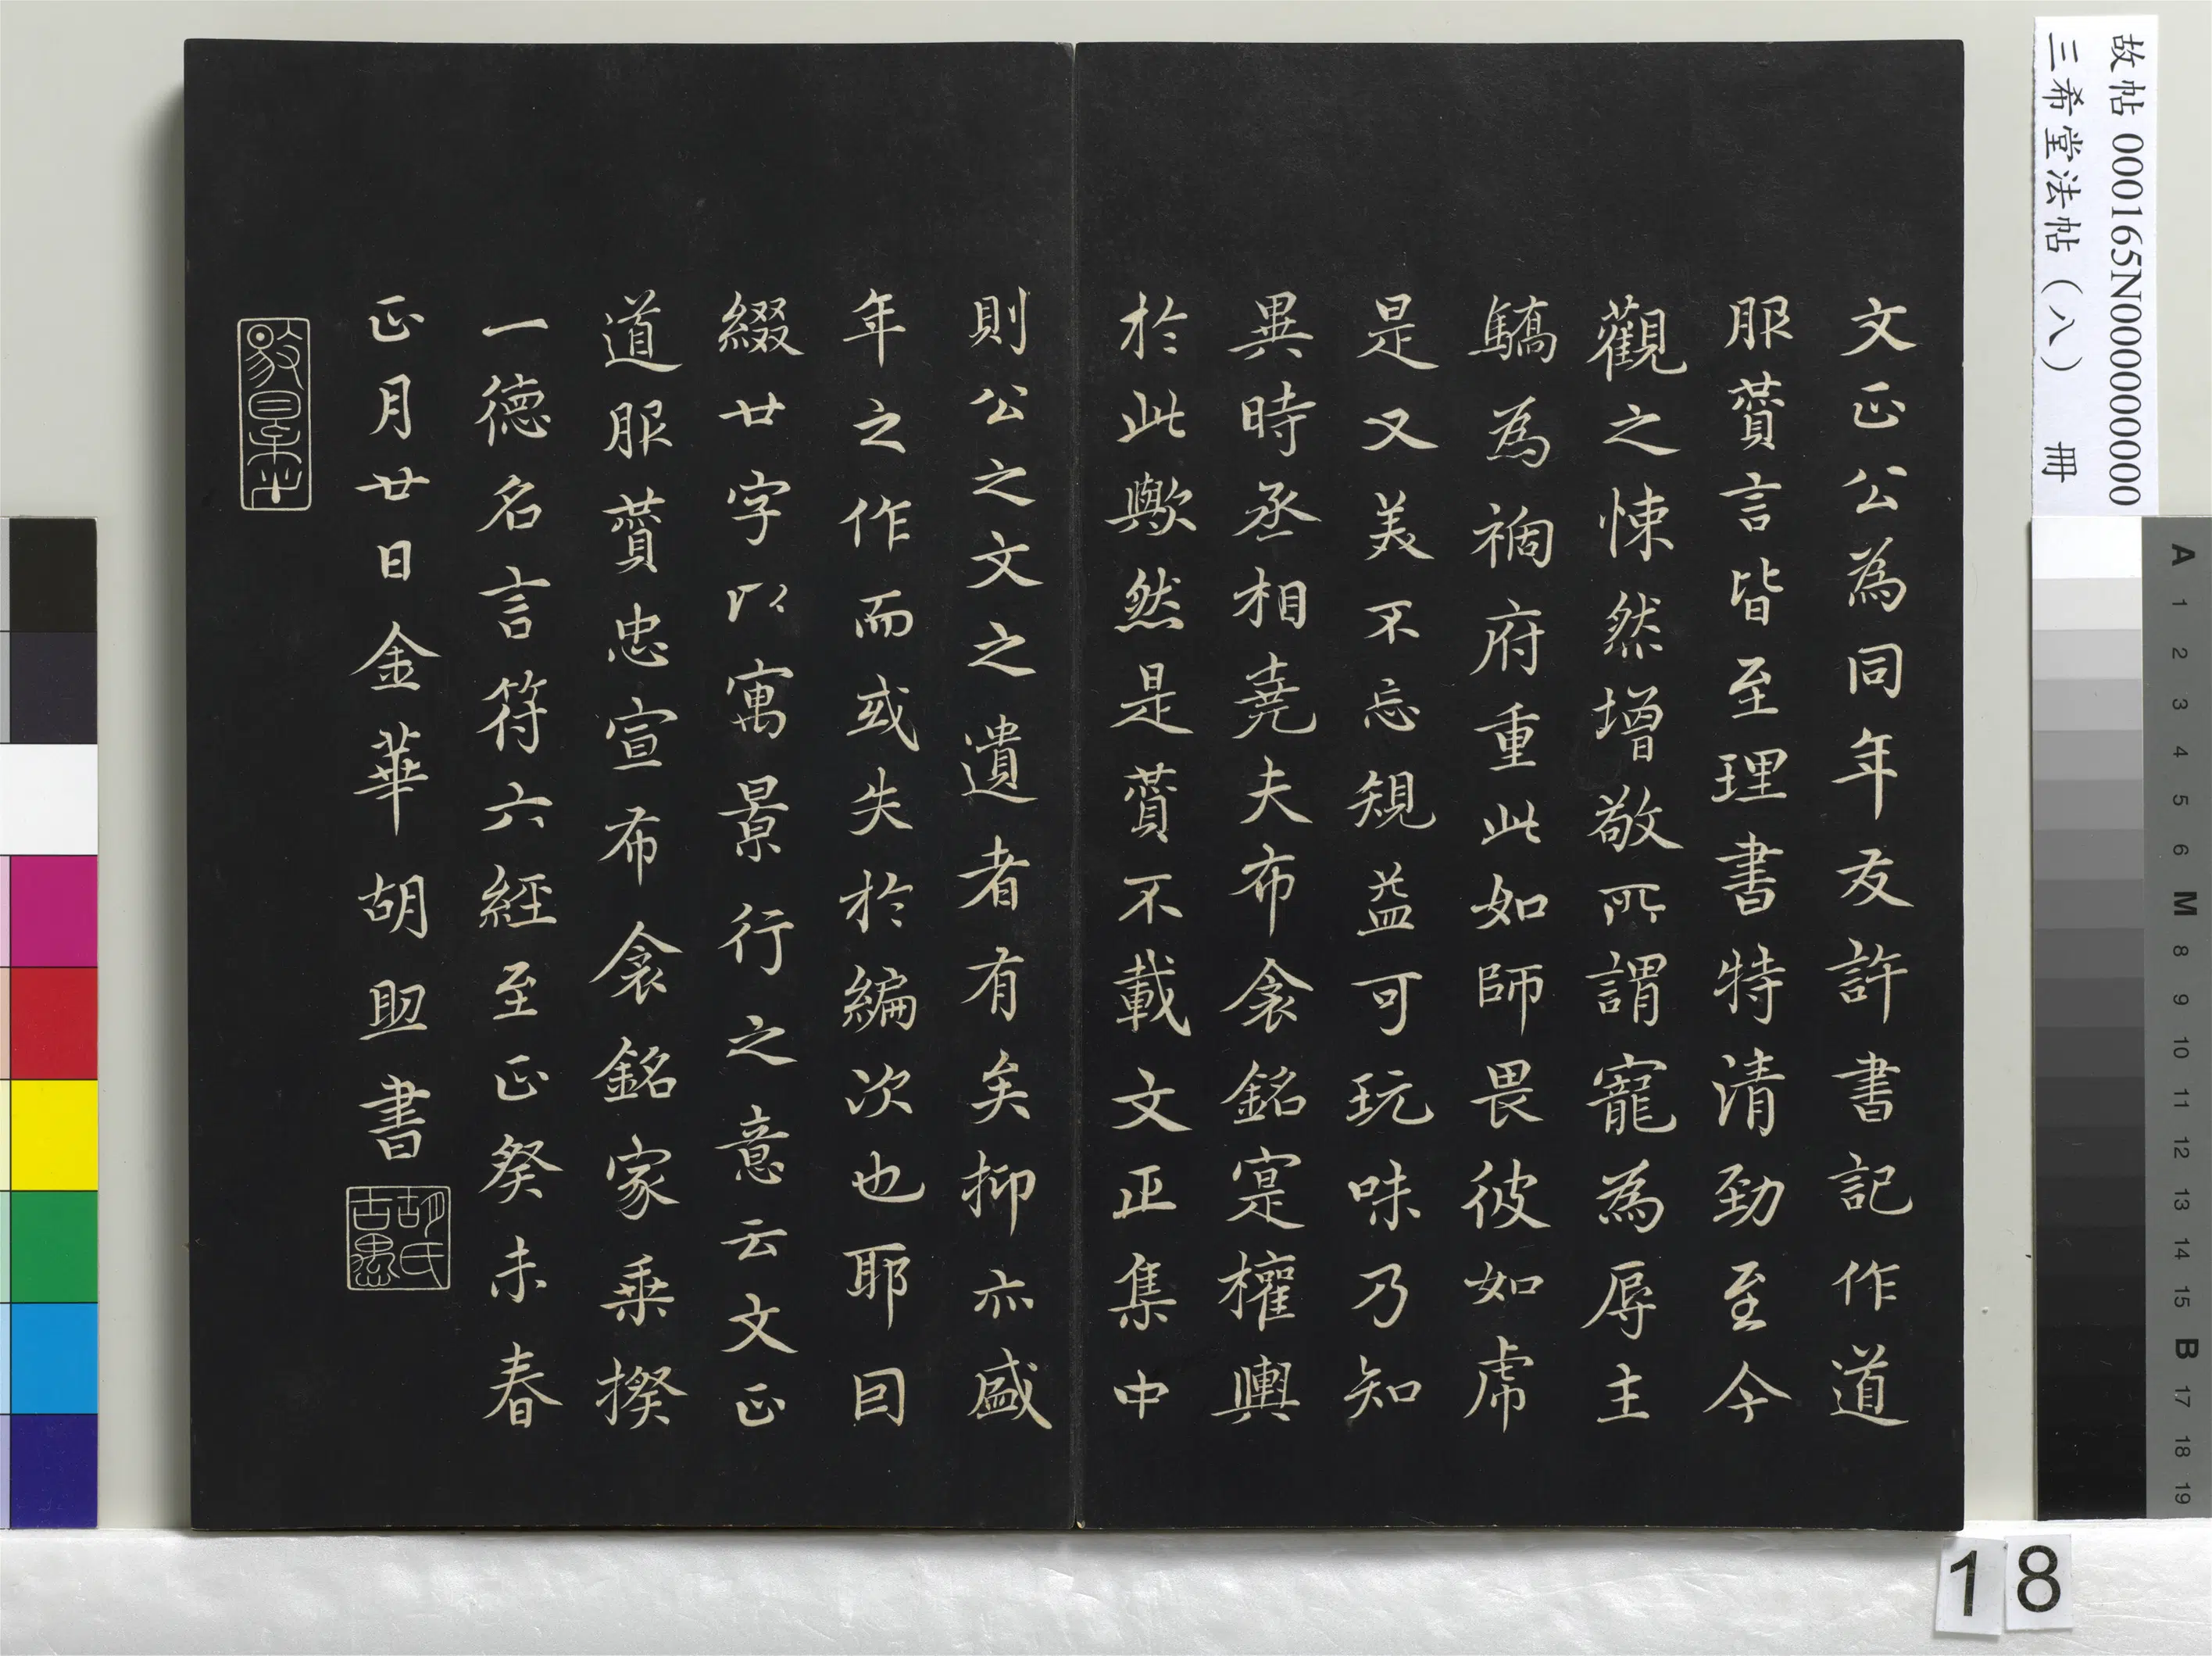 文正公為同年友許書記作道
服贊言皆至理書特清勁至今
觀之悚然增敬所謂寵為辱主
驕為禍府重此如師畏彼如虎
是又美不忘規益可玩味乃知
異時丞相堯夫布衾銘寔權輿
於此歟然是贊不載文正集中
則公之文之遺者有矣抑亦盛
年之作而或失於編次也耶因
綴廿字以寓景行之意云文正
道服贊忠宣布衾銘家乘揆
一德名言符六經至正癸未春
正月廿日金華胡助書
胡氏古愚
故帖 000165N000000000
三希堂法帖（八） 冊
A 1 2 3 4 5 6 M 8 9 10 11 12 13 14 15 B 17 18 19
18